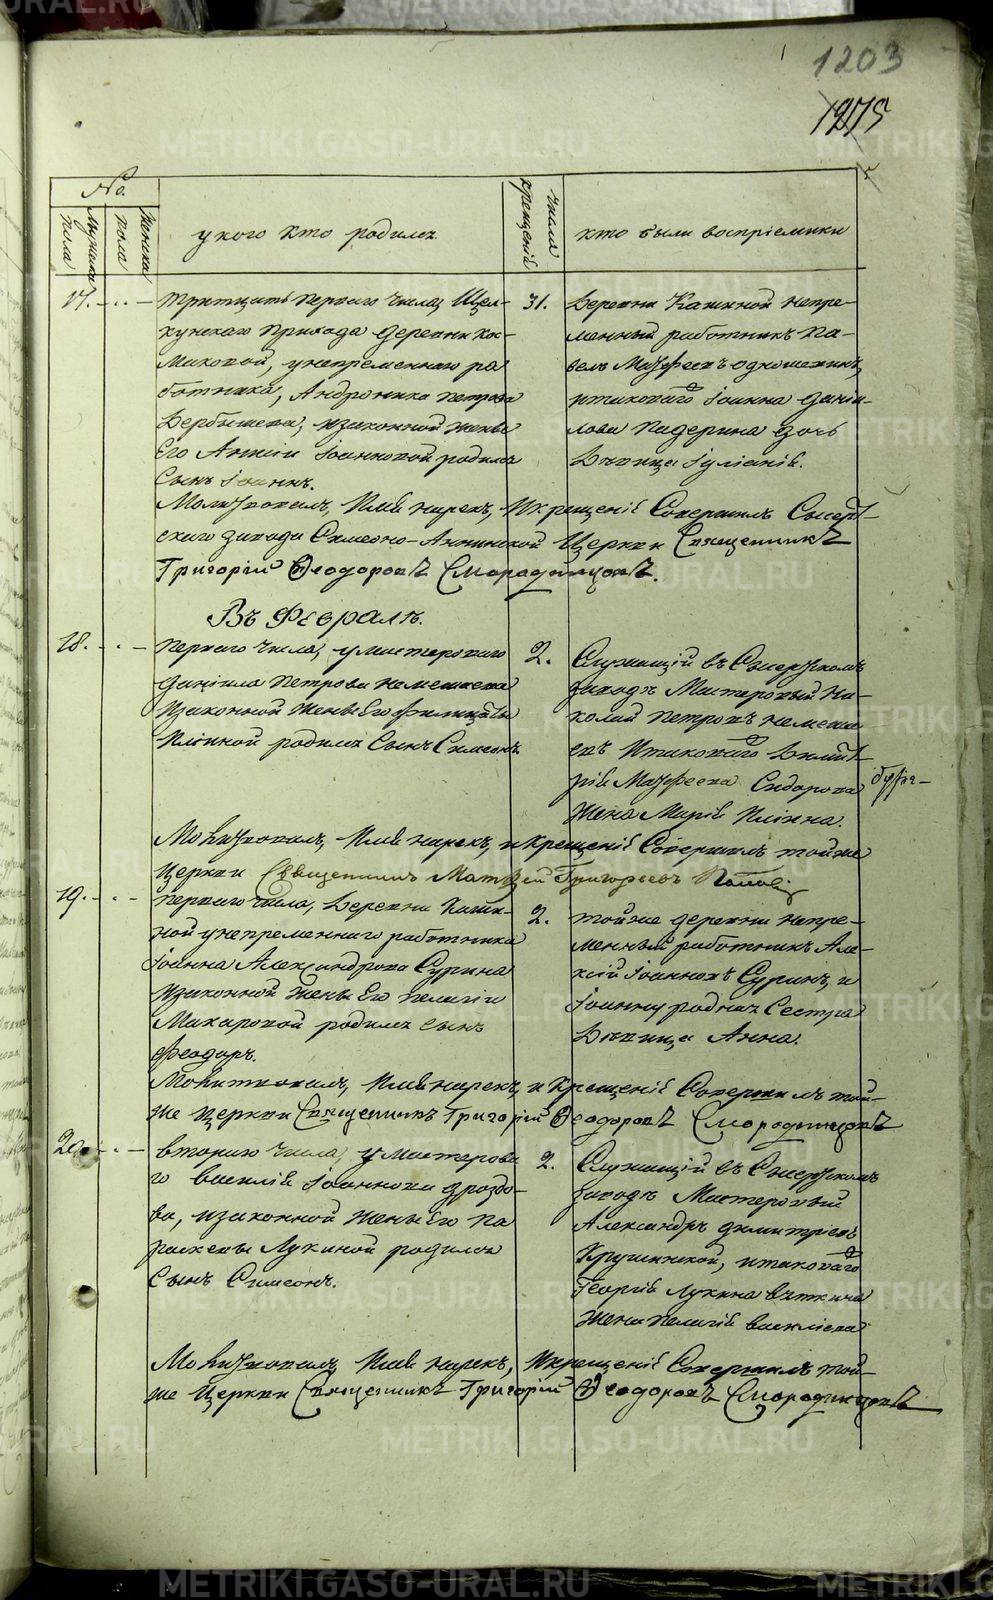 1203
1275
No.
Мужеска пола
Женска пола
у кого кто родился
Числа крещенія
кто были воспріемники
17.
тритцать перваго числа, Щел-
кунскаго прихода деревни Кос-
маковой, у непременнаго ра
ботника, Андроника Петрова
Вербышева, и законной жены
Его Анисіи Іоанновой родился
Сынъ Іоаннъ.
31.
деревни Кашиной непре-
менный работникъ Па-
велъ Матфеевъ
и таковаго Іоанна Дании-
лова Падерина дочь
девица Іуліанія.
Молитвовалъ, Имя нарекъ, и крещеніе Совершилъ Сысерт-
скаго завода Симеоно-Аннинской Церкви Священникъ
Григорій Феодоровъ Смородинцовъ.
Въ Февралѣ.
18.
перваго числа, у мастероваго
Даніила Петрова Немешаева
и законной жены Его Филицаты
Иліиной родился Сынъ Симеонъ
2.
Служащій въ Сысертскомъ
заводѣ Мастеровый Ни-
колай Петровъ Немеша-
евъ и таковаго Димит-
рія Матфеева Сидорова
жена Марія Иліина.
Молитвовалъ, Имя нарекъ, и крещеніе Совершилъ той же
Церкви Священникъ Матфей Григорьевъ Поповъ
19.
перваго числа, деревни Каши-
ной у непременнаго работника
Іоанна Александрова Сурина
и законной жены Его Пелагіи
Макаровой родился сынъ
Феодоръ.
2.
той же деревни непре-
менный работникъ Але-
ксій Іоанновъ Суринъ, и
Іоанну родная Сестра
девица Анна.
Молитвовалъ, Имя нарекъ, и крещеніе Совершилъ той-
же Церкви Священникъ Григорій Феодоровъ Смородинцовъ
20.
втораго числа, у мастерова
го Василія Іоаннова Дроздо-
ва, и законной жены Его Па
раскевы Лукиной родился
Сынъ Симеонъ.
2.
Служащій въ Сысертскомъ
заводѣ Мастеровый
Александръ Димитріевъ
Крушинской, и таковаго
Георгія Лукина Вяткина
жена Пелагія Василіева
Молитвовалъ, Имя нарекъ, и крещеніе Совершилъ той-
же Церкви Священникъ Григорій Феодоровъ Смородинцовъ
METRIKI.GASO-URAL.RU